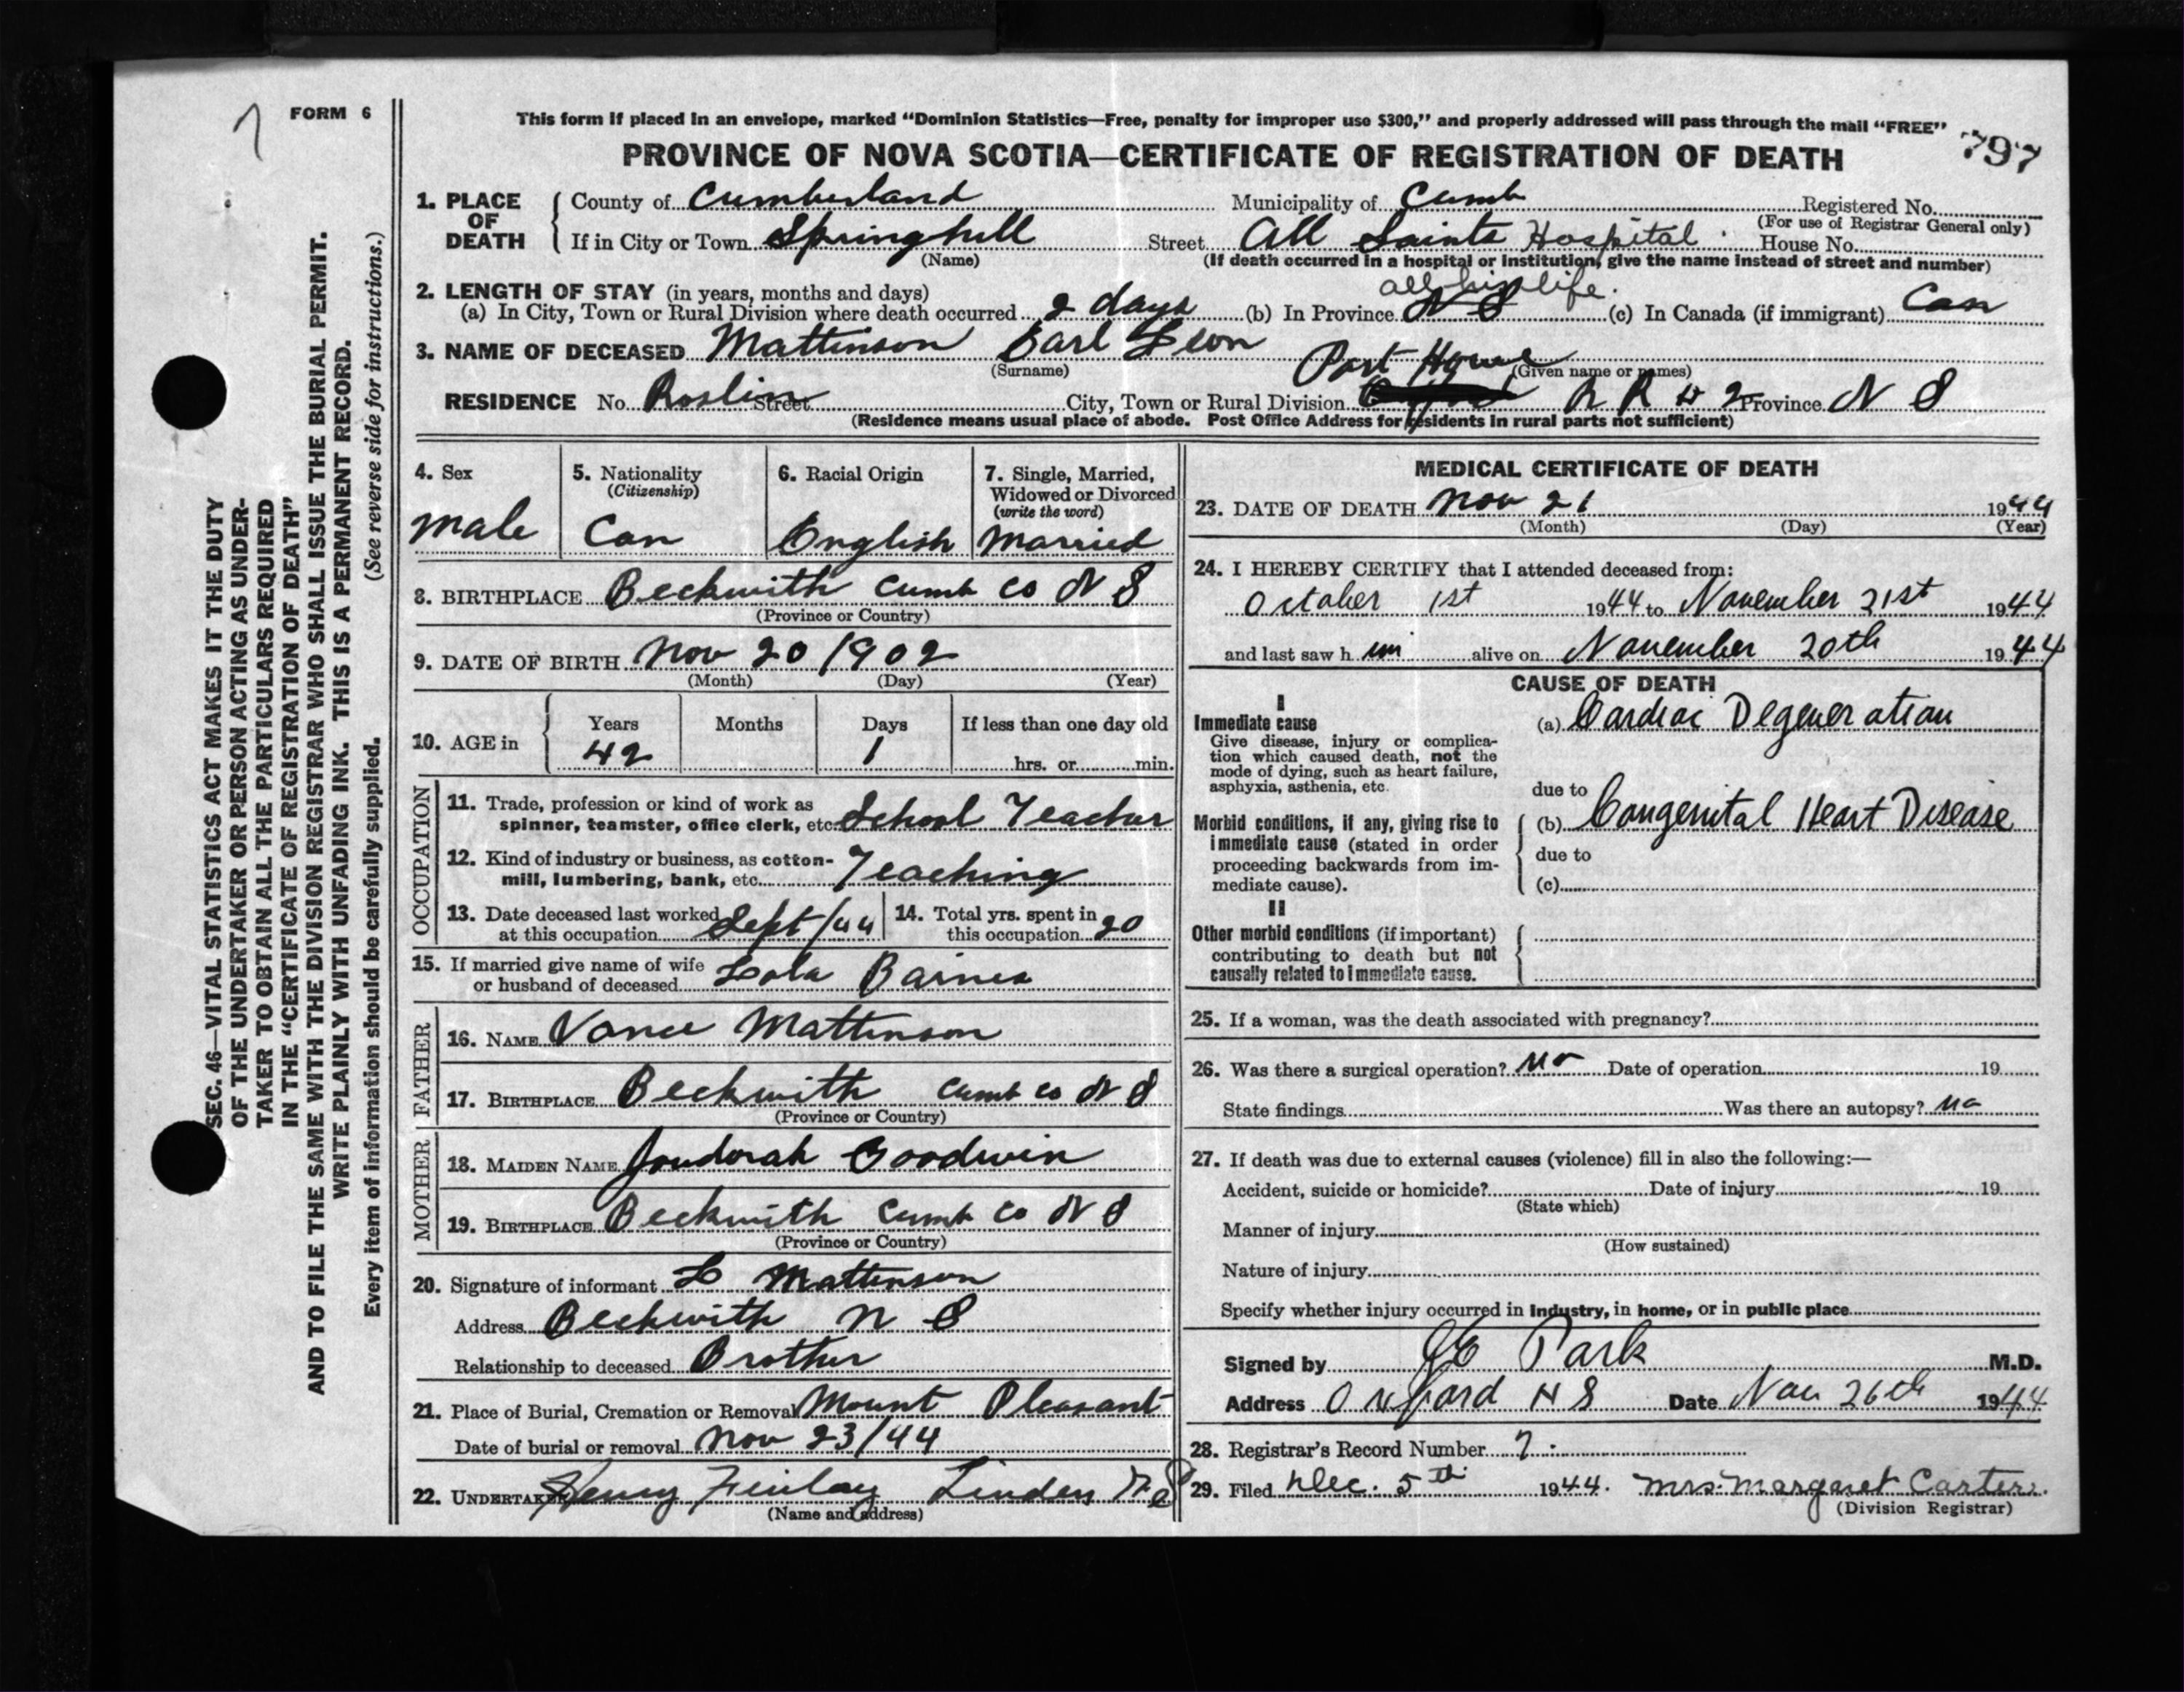 7
FORM 6
This form if placed in an envelope, marked "Dominion Statistics—Free, penalty for improper use $300," and properly addressed will pass through the mail "FREE"
797
PROVINCE OF NOVA SCOTIA—CERTIFICATE OF REGISTRATION OF DEATH
SEC. 46—VITAL STATISTICS ACT MAKES IT THE DUTY
OF THE UNDERTAKER OR PERSON ACTING AS UNDER-
TAKER TO OBTAIN ALL THE PARTICULARS REQUIRED
IN THE "CERTIFICATE OF REGISTRATION OF DEATH"
AND TO FILE THE SAME WITH THE DIVISION REGISTRAR WHO SHALL ISSUE THE BURIAL PERMIT.
WRITE PLAINLY WITH UNFADING INK. THIS IS A PERMANENT RECORD.
Every item of information should be carefully supplied. (See reverse side for instructions.)
1. PLACE OF DEATH County of Cumberland Municipality of Cumb Registered No.
(For use of Registrar General only)
If in City or Town Springhill Street All Saints Hospital House No.
(Name) (If death occurred in a hospital or institution, give the name instead of street and number)
2. LENGTH OF STAY (in years, months and days) all his life.
(a) In City, Town or Rural Division where death occurred 2 days (b) In Province N S (c) In Canada (if immigrant) Can
3. NAME OF DECEASED Mattinson Earl Leon
(Surname) (Given name or names)
Port Howe
RESIDENCE No. Roslin Street City, Town or Rural Division R R # 2 Province N S
(Residence means usual place of abode. Post Office Address for residents in rural parts not sufficient)
4. Sex male
5. Nationality (Citizenship) Can
6. Racial Origin English
7. Single, Married, Widowed or Divorced (write the word) Married
8. BIRTHPLACE Beckwith Cumb Co N S
(Province or Country)
9. DATE OF BIRTH Nov 20 1902
(Month) (Day) (Year)
10. AGE in Years 42 Months Days 1 If less than one day old hrs. or min.
OCCUPATION
11. Trade, profession or kind of work as
spinner, teamster, office clerk, etc. School Teacher
12. Kind of industry or business, as cotton-
mill, lumbering, bank, etc. Teaching
13. Date deceased last worked at this occupation Sept/44 14. Total yrs. spent in this occupation 20
15. If married give name of wife
or husband of deceased Lola Barnes
FATHER
16. NAME Vance Mattinson
17. BIRTHPLACE Beckwith Cumb Co N S
(Province or Country)
MOTHER
18. MAIDEN NAME Goodwin
19. BIRTHPLACE Beckwith Cumb Co N S
(Province or Country)
20. Signature of informant L Mattinson
Address Beckwith N S
Relationship to deceased Brother
21. Place of Burial, Cremation or Removal Mount Pleasant
Date of burial or removal Nov 23/44
22. UNDERTAKER Henry Finlay Linden N.S
(Name and address)
MEDICAL CERTIFICATE OF DEATH
23. DATE OF DEATH Nov 21 1944
(Month) (Day) (Year)
24. I HEREBY CERTIFY that I attended deceased from:
October 1st 1944 to November 21st 1944
and last saw h im alive on November 20th 1944
CAUSE OF DEATH
I
Immediate cause (a) Cardiac Degeneration
Give disease, injury or complica-
tion which caused death, not the
mode of dying, such as heart failure,
asphyxia, asthenia, etc.
due to
Morbid conditions, if any, giving rise to
immediate cause (stated in order
proceeding backwards from im-
mediate cause).
(b) Congenital Heart Disease
due to
(c)
II
Other morbid conditions (if important)
contributing to death but not
causally related to immediate cause.
25. If a woman, was the death associated with pregnancy?
26. Was there a surgical operation? No Date of operation 19
State findings Was there an autopsy? No
27. If death was due to external causes (violence) fill in also the following:—
Accident, suicide or homicide? Date of injury 19
(State which)
Manner of injury
(How sustained)
Nature of injury
Specify whether injury occurred in industry, in home, or in public place
Signed by Park M.D.
Address Oxford N S Date Nov 26th 1944
28. Registrar's Record Number 7.
29. Filed Dec. 5th 1944. Mrs. Margaret Carter.
(Division Registrar)